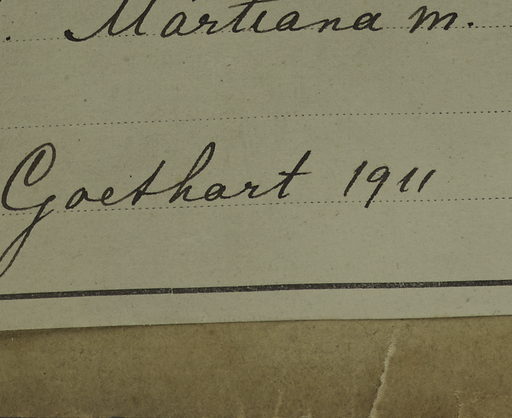 . Martiana m.
Goethart 1911